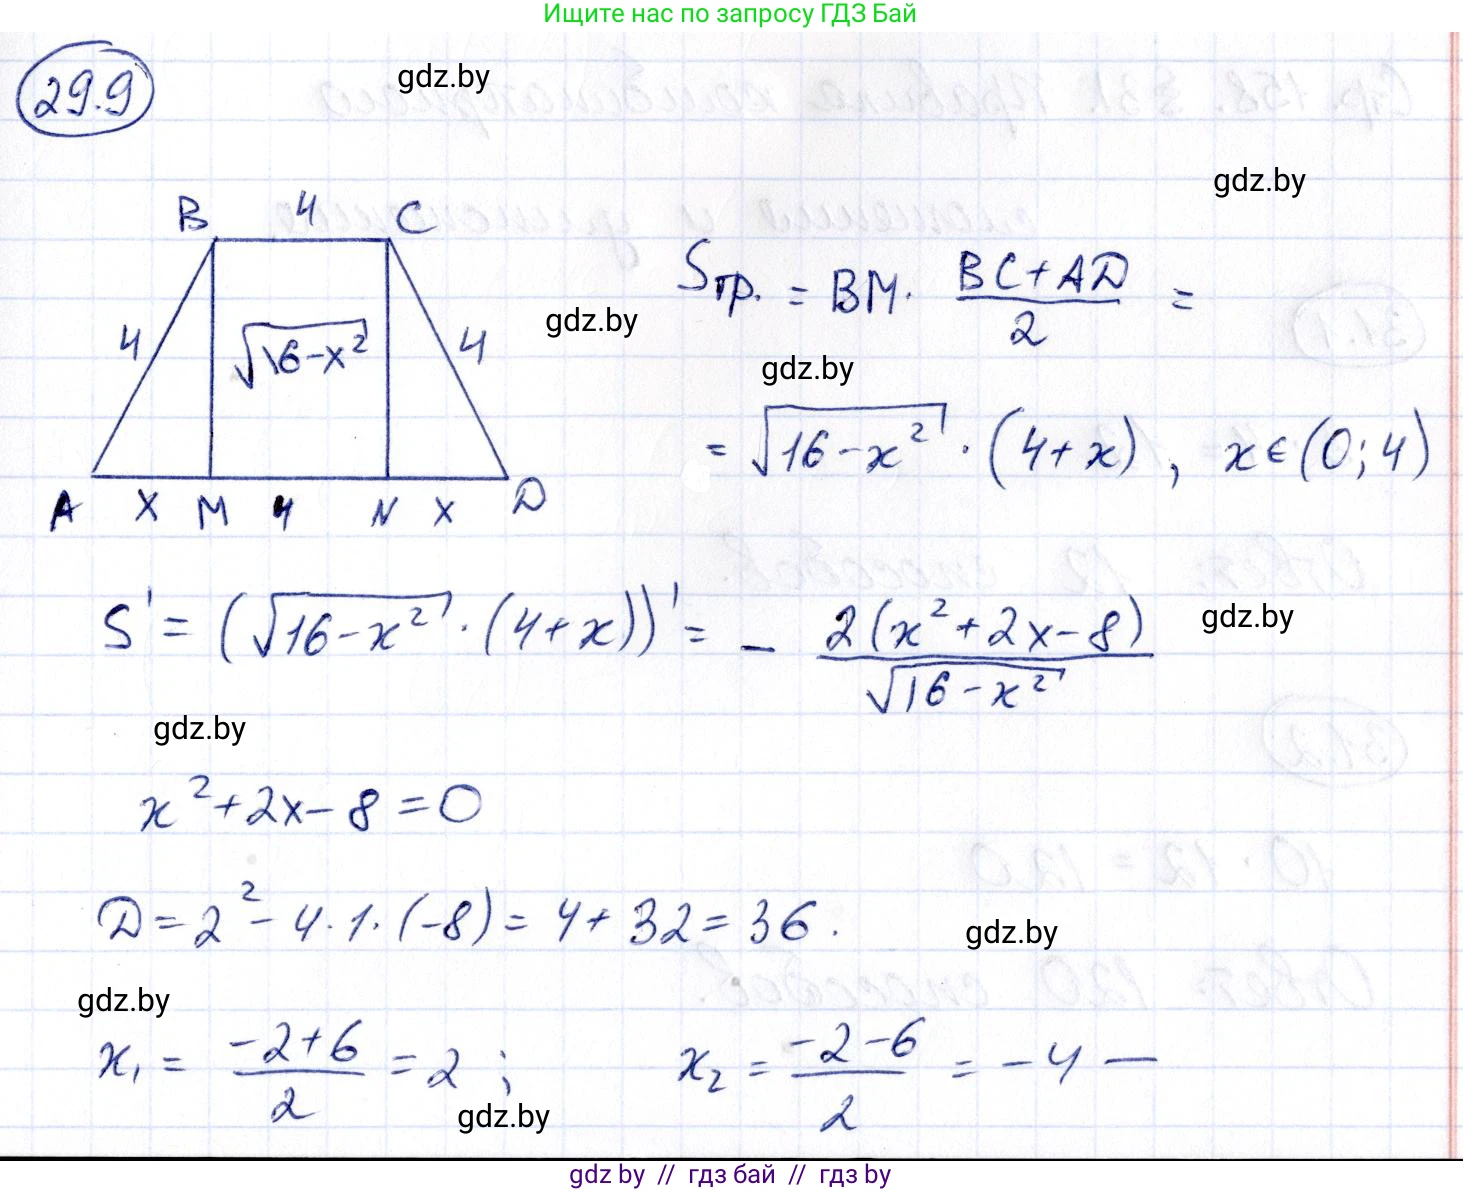 Ищите нас по запросу ГДЗ Бай
29.9
gdz.by
gdz.by
B 4 C
Sтр. = BM · (BC+AD)/2 =
gdz.by
4 √16-x² 4
gdz.by
= √16-x² · (4+x), x∈(0;4)
A x M 4 N x D
S' = (√16-x² · (4+x))' = - 2(x²+2x-8)/√16-x²
gdz.by
gdz.by
x²+2x-8=0
D=2²-4·1·(-8)=4+32=36.
gdz.by
gdz.by
x₁ = (-2+6)/2 = 2; x₂ = (-2-6)/2 = -4 —
gdz.by
gdz by // гдз бай // гдз by